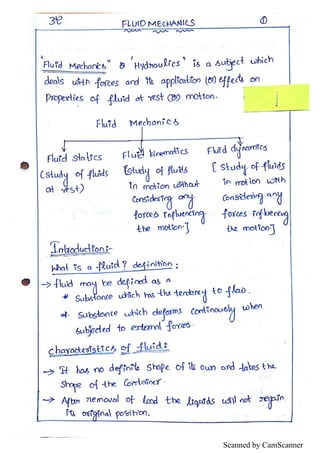 FLUID MECHANICS ①
"Fluid Mechanics" & "Hydraulics" is a subject which
deals with forces and its application (or) effects on
Properties of fluid at rest (or) motion.
Fluid Mechanics
Fluid Statics
(study of fluids
at rest)
Fluid kinematics
[study of fluids
in motion without
Considering any
forces influencing
the motion.]
Fluid dynamics
[Study of fluids
in motion with
Considering any
forces influencing
the motion]
Introduction:-
What is a fluid? definition:
→ fluid may be defined as a
* Substance which has the tendency to flow.
* Substance which deforms continously when
subjected to external forces.
characteristics of fluid:
→ It has no definite shape of its own and takes the
Shape of the Container.
→ After removal of load the liquids will not regain
its original position.
Scanned by CamScanner